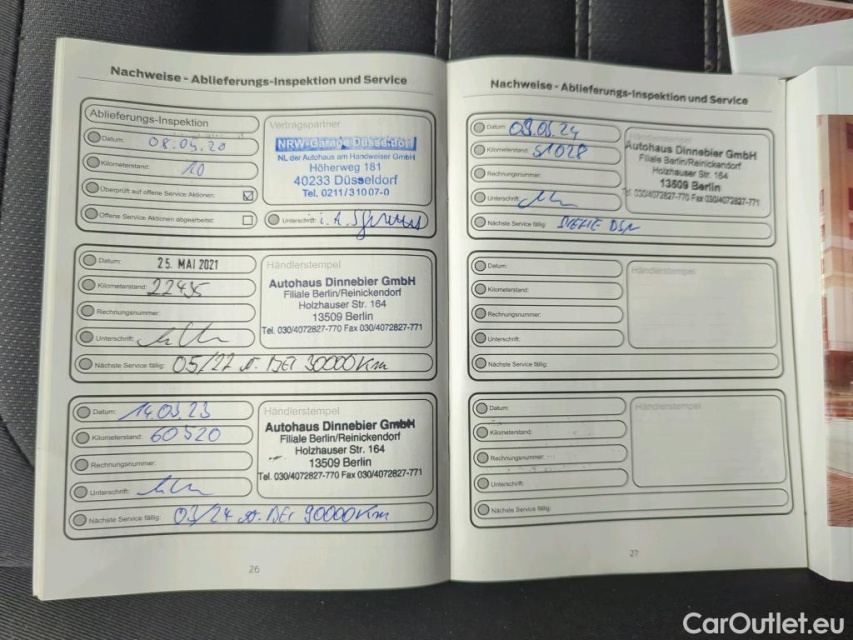 Nachweise - Ablieferungs-Inspektion und Service
Ablieferungs-Inspektion
Datum: 08.05.20
Kilometerstand: 10
Überprüft auf offene Service Aktionen:
Offene Service Aktionen abgearbeitet:
Vertragspartner
NRW-Garage Düsseldorf
NL der Autohaus am Handweiser GmbH
Höherweg 181
40233 Düsseldorf
Tel. 0211/31007-0
Unterschrift: i. A.
Datum: 25. MAI 2021
Kilometerstand: 22495
Rechnungsnummer:
Unterschrift:
Nächste Service fällig: 05/22 o. BEI 30000 Km
Händlerstempel
Autohaus Dinnebier GmbH
Filiale Berlin/Reinickendorf
Holzhauser Str. 164
13509 Berlin
Tel. 030/4072827-770 Fax 030/4072827-771
Datum: 14.03.23
Kilometerstand: 60520
Rechnungsnummer:
Unterschrift:
Nächste Service fällig: 03/24 o. BEI 90000 Km
Händlerstempel
Autohaus Dinnebier GmbH
Filiale Berlin/Reinickendorf
Holzhauser Str. 164
13509 Berlin
Tel. 030/4072827-770 Fax 030/4072827-771
26
Nachweise - Ablieferungs-Inspektion und Service
Datum:
Kilometerstand: 51028
Rechnungsnummer:
Unterschrift:
Nächste Service fällig: SIEHE
Händlerstempel
Autohaus Dinnebier GmbH
Filiale Berlin/Reinickendorf
Holzhauser Str. 164
13509 Berlin
Tel. 030/4072827-770 Fax 030/4072827-771
Datum:
Kilometerstand:
Rechnungsnummer:
Unterschrift:
Nächste Service fällig:
Händlerstempel
Datum:
Kilometerstand:
Rechnungsnummer:
Unterschrift:
Nächste Service fällig:
Händlerstempel
27
CarOutlet.eu